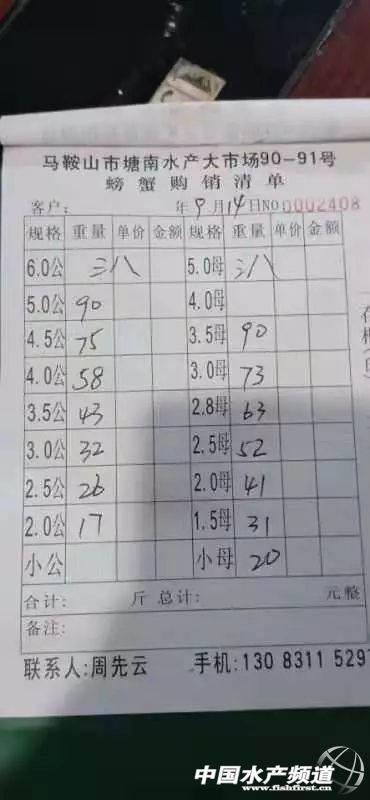 马鞍山市塘南水产大市场90-91号
螃蟹购销清单
客户: 年9月14日NO:0002408
规格 重量 单价 金额 规格 重量 单价 金额
6.0公 三八 5.0母 三八
5.0公 90 4.0母
4.5公 75 3.5母 90
4.0公 58 3.0母 73
3.5公 43 2.8母 63
3.0公 32 2.5母 52
2.5公 26 2.0母 41
2.0公 17 1.5母 31
小公 小母 20
合计: 斤 总计: 元整
备注:
联系人:周先云 手机:130 8311 529
中国水产频道
www.fishfirst.cn